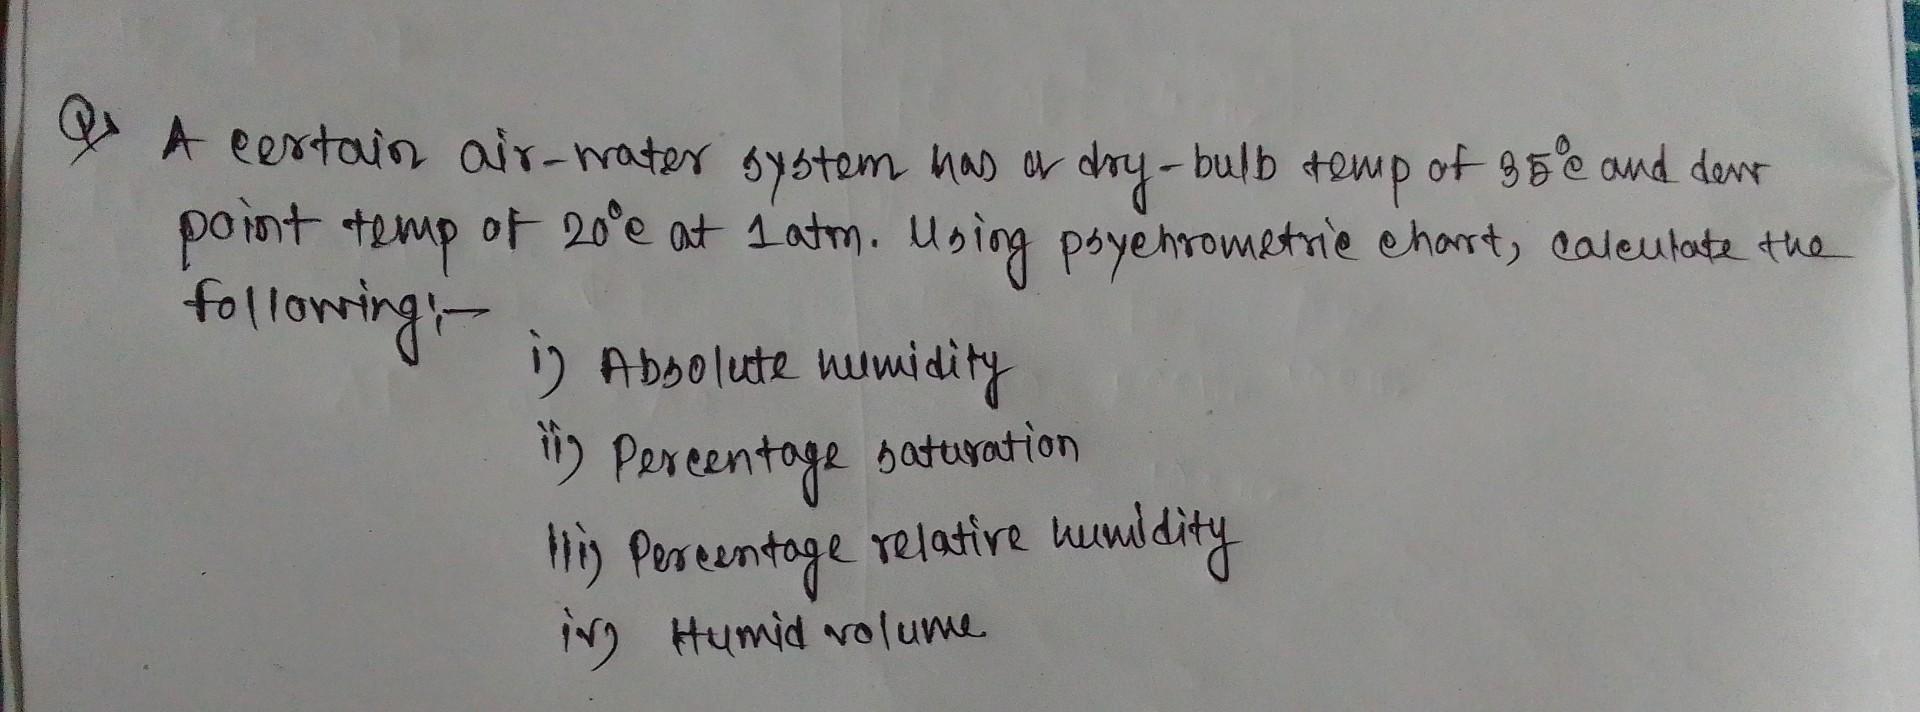 Q) A certain air-water system has a dry-bulb temp of 35°C and dew
point temp of 20°C at 1 atm. Using psychrometric chart, calculate the
following:-
i) Absolute humidity
ii) Percentage saturation
iii) Percentage relative humidity
iv) Humid volume